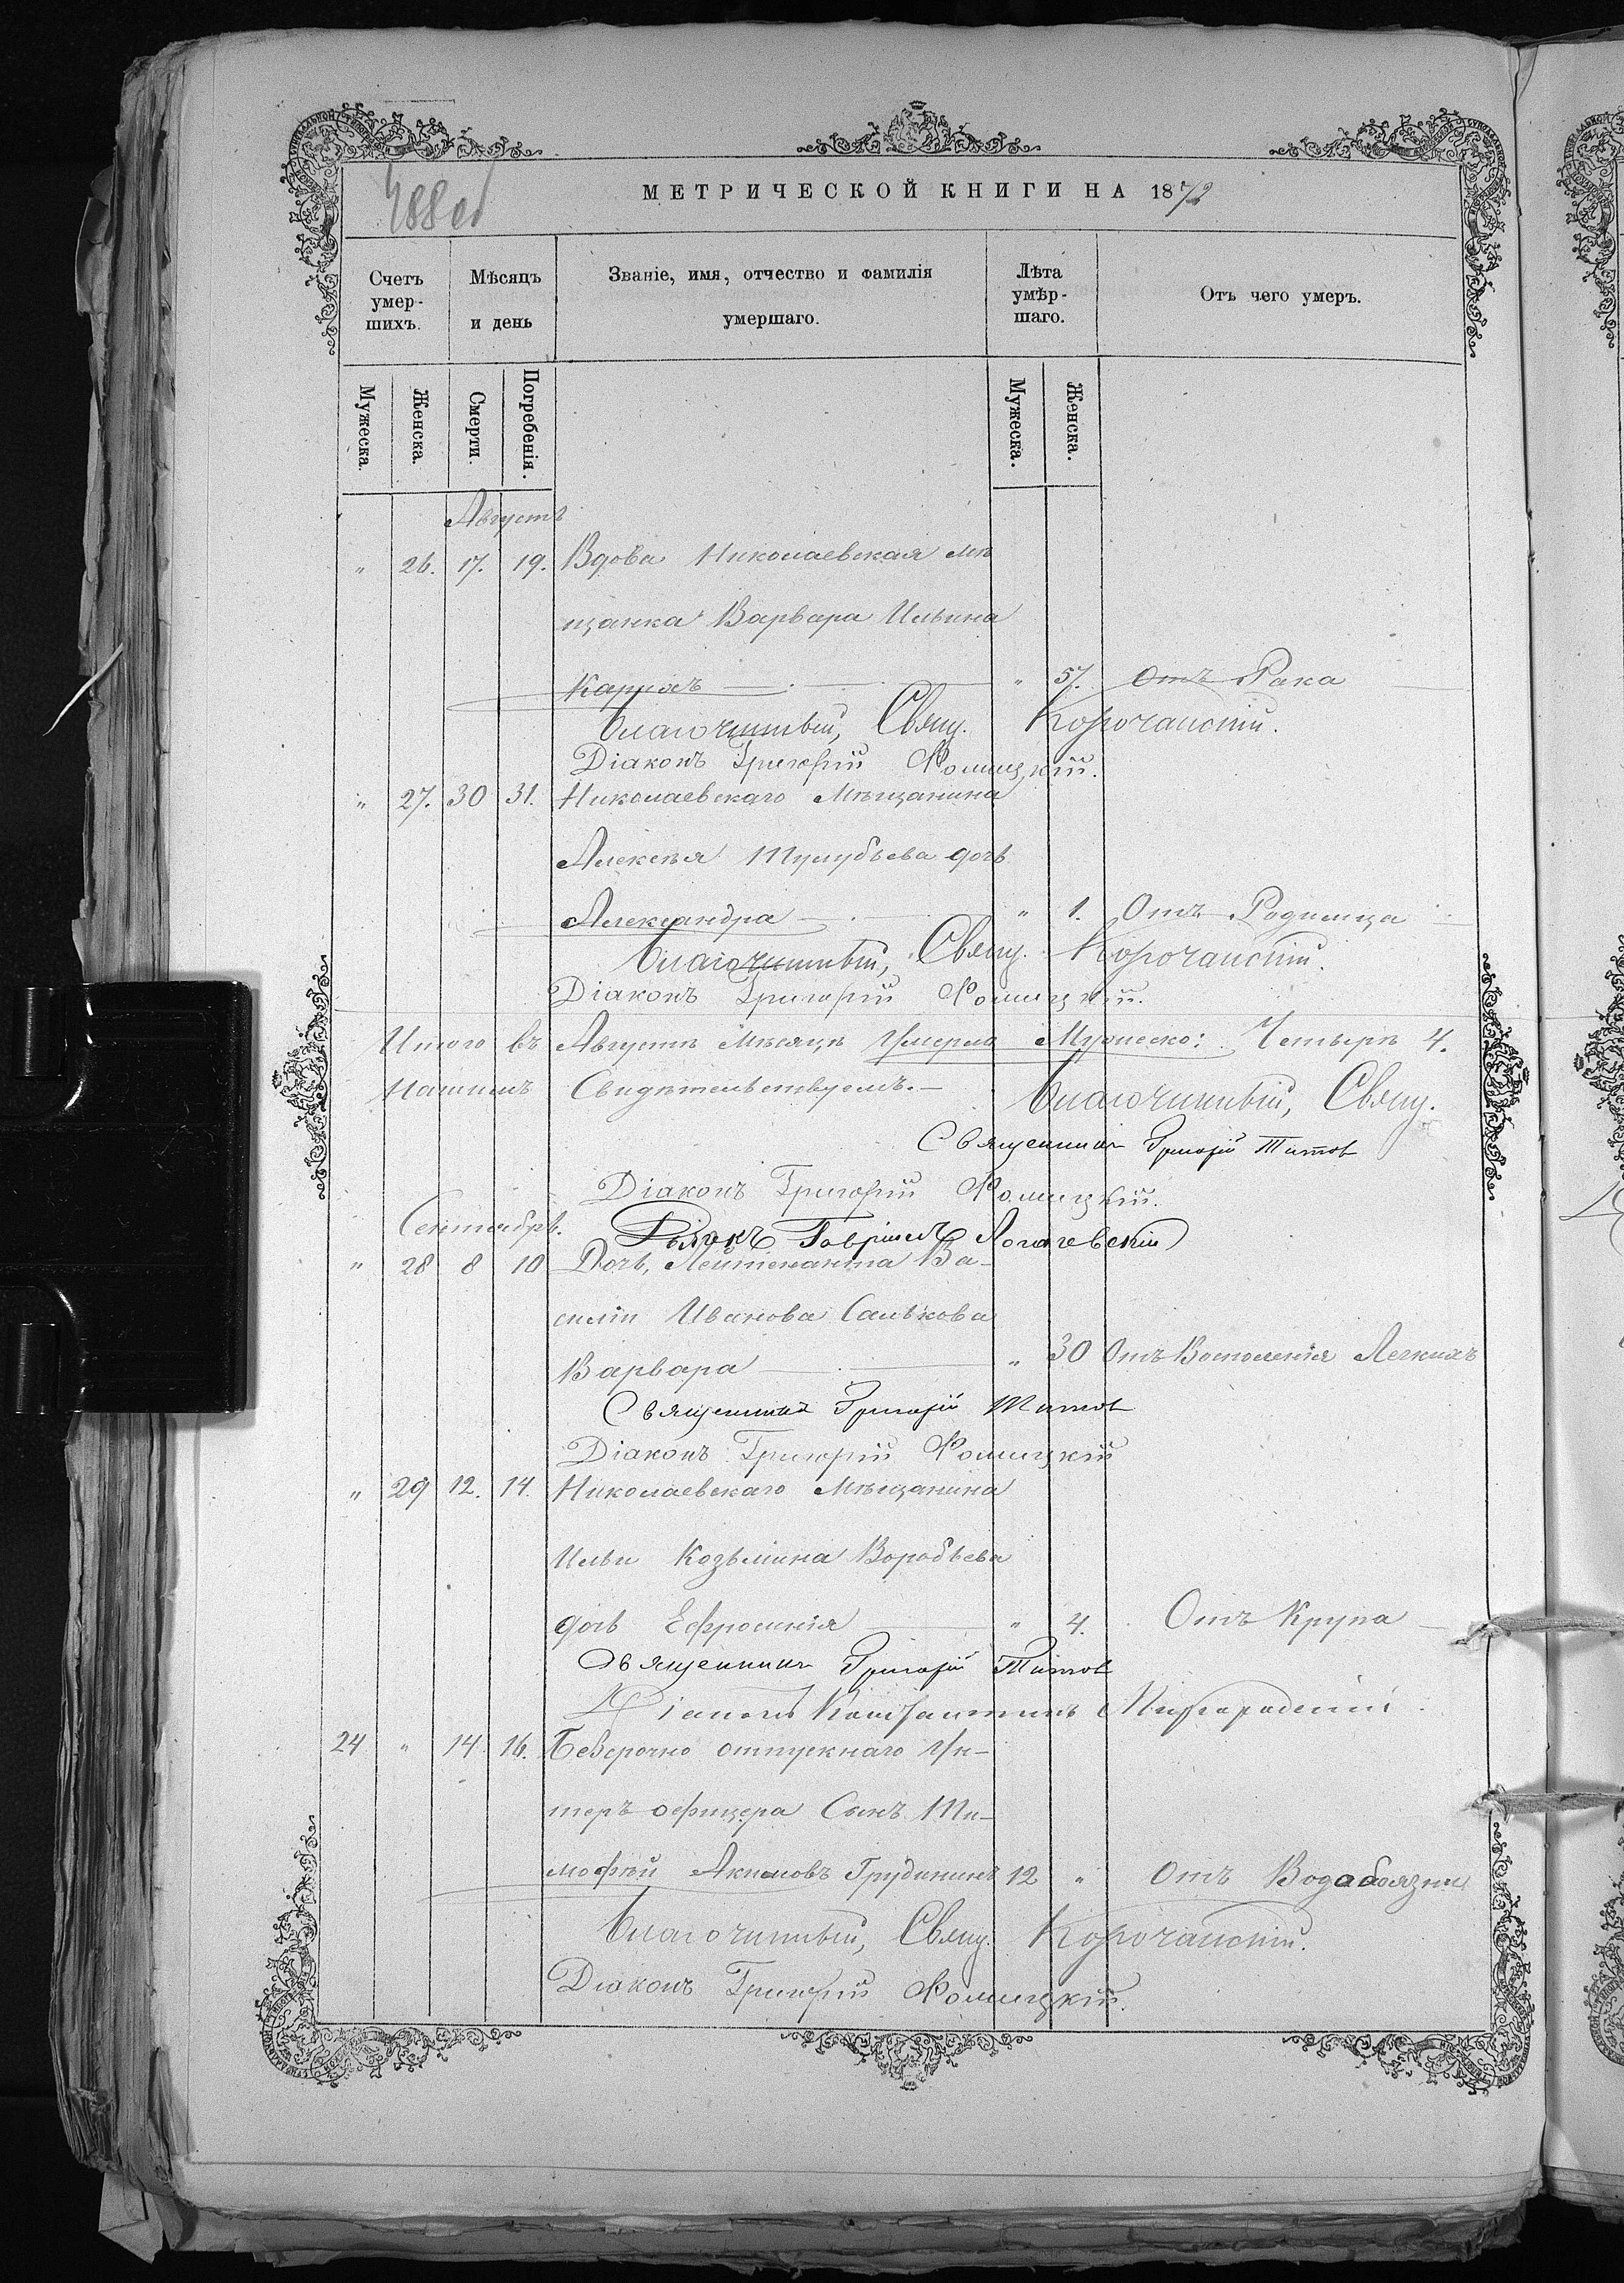 488 об
МЕТРИЧЕСКОЙ КНИГИ НА 1872
Счетъ умер-шихъ.
Мѣсяцъ и день
Званіе, имя, отчество и фамилія умершаго.
Лѣта умѣр-шаго.
Отъ чего умеръ.
Мужеска.
Женска.
Смерти.
Погребенія.
Мужеска.
Женска.
Августъ
" 26. 17. 19. Вдова Николаевская мѣ
щанка Варвара Ильина
" 57. Отъ Рака
Благочинный, Свящ. Корочанскій.
Діаконъ Григорій Фомицкій.
" 27. 30 31. Николаевскаго Мѣщанина
Алексѣя Тулубьева дочь
Александра " 1. Отъ Родимца
Благочинный, Свящ. Корочанскій.
Діаконъ Григорій Фомицкій.
Итого въ Августѣ Мѣсяцѣ Умерло Мужеско: Четыре 4.
Свидѣтельствуемъ.
Благочинный, Свящ.
Священникъ Григорій Титов
Діаконъ Григорій Фомицкій.
Сентябрь.
Гавріилъ
" 28 8 10 Дочь, Лейтенанта Ва-
силія Иванова Салькова
Варвара " 30 Отъ Восполенія Легкихъ
Священникъ Григорій Титов
Діаконъ Григорій Фомицкій
" 29 12. 14. Николаевскаго Мѣщанина
Ильи Козьмина Воробьева
дочь Ефросинія " 4. Отъ Крупа
Священникъ Григорій Титов
Діаконъ Константинъ Миргородскій
24 " 14 16. Безсрочно отпускнаго Ун-
теръ офицера Сынъ Ти-
мофѣй Акимовъ Грудининъ 12 " Отъ Водобоязни
Благочинный, Свящ. Корочанскій.
Діаконъ Григорій Фомицкій.